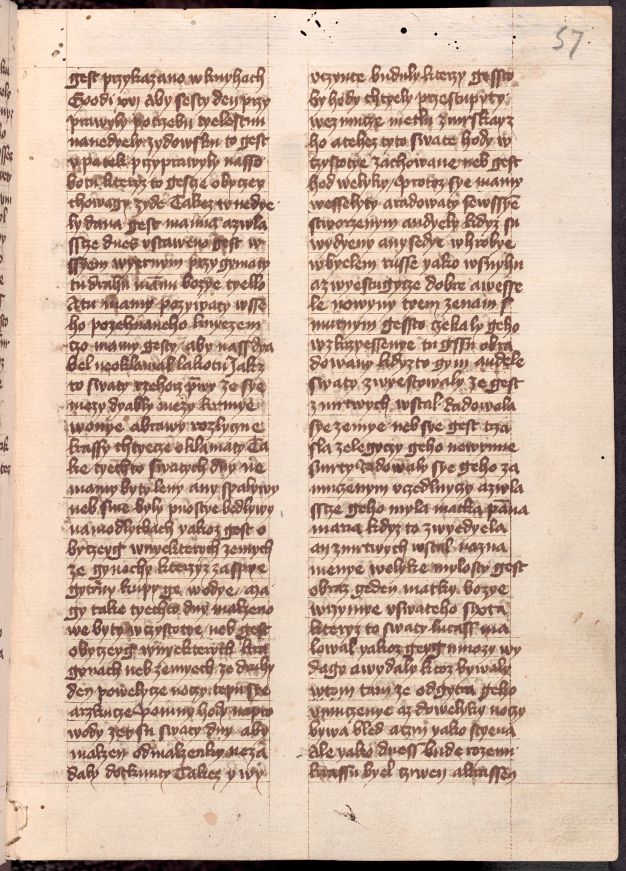 57
gest przykazano w knyhach
Exodi xvj Aby sesty den przy
prawyly potrzebu tyelestnu
na nedyely zydowsku to gest
w patek przyprawyly na sso
botu kteryz to gesscze obyczey
chowagy zyde Takez w nedye
ly dana gest manna a zwla
sscze dnes vstaweno gest w
ssyem wyernym przygymaty
tu drahu mannu bozye tyello
A tu mamy pozywaty wsse
ho pozehnaneho knyezem
czo mamy gesty aby nass dya
bel neoklamal lakotu Jakz
to swaty rzehorz prwy ze sye
mezy dyably mezy krmye
wonye a barwy rozlyczne
krassy chtyecze oklamaty Ta
ke tyechto swatych dny ne
mamy byty leny any spalywy
neb sme byly w postye bedlywy
na modlytbach yakoz gest o
byczeyg w nyekterych zemych
ze gynochy kteryz zasspye
gytrzny kupy ge wodye a ma
gy take tyechto dny malzeno
we byty w czystotye neb gest
obyczeyg w nyekterych kra
gynach neb zemyech ze druhy
den powelyczenoczy tepu sye
a rzkucze pomny hody na pro
wody ze tyto su swaty dny aby
malzen od malzenky neza
daly dotknuty Takez y wy
vczynte budluly kterzy gessto
by hody chtyely przestupyty
wezmuce metlu z mrskayz
ho a tehez tyto swate hody w
czystotye zachowane neb gest
hod welyky Protoz sye mamy
wesselyty a radowaty se wssye
stworzenym andyely kdyz su
wydyeny any sedye w hrobye
w byelem russe yako w snyhu
a zwyestugycze dobre a wesse
le nowyny trzem zenam s
mutnym gessto czekaly geho
wzkrzyessenye tu gssu obra
dowany kdyz to gym andele
swaty zwyestowaly ze gest
z mrtwych wstal Radowala
sye zemye neb sye gest trza
sla zelegyczy geho newynne
smrty Radowaly sye geho za
muczenym vczedlnyczy a zwla
sscze geho myla matka panna
maria kdyz to zwyedyela
an z mrtwych wstal na zna
menye welyke mylosty gest
obraz geden matky bozye
w rzymye v swateho sixta
kteryz to swaty lucass ma
lowal yakoz geyg mnozy wy
dagy a wydaly ktoz bywaly
w tom tam ze od gytra geho
vmuczenye az do welyke noczy
bywa bled a czrn yako styena
ale yako dness bude rzemi
krassu byel czrwen a krassen